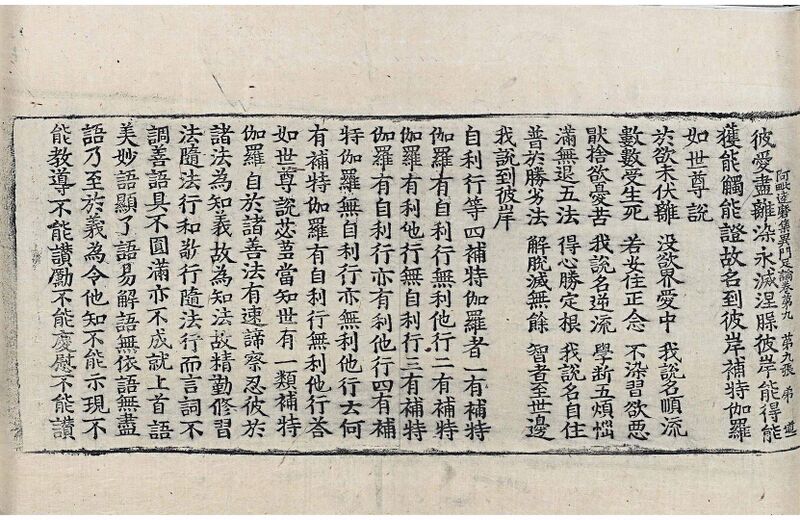 彼愛盡離染永滅涅槃彼岸能得能
阿毗達磨集異門足論卷第九 第九張 弟
獲能觸能證故名到彼岸補特伽羅
如世尊說
於欲未伏離 没欲界愛中 我說名順流
數數受生死 若女住正念 不染習欲惡
猒捨欲憂苦 我說名逆流 學斷五煩惱
滿無退五法 得心勝定根 我說名自住
普於勝劣法 解脫滅無餘 智者至世邊
我說到彼岸
自利行等四補特伽羅者一有補特
伽羅有自利行無利他行二有補特
伽羅有利他行無自利行三有補特
伽羅有自利行亦有利他行四有補
特伽羅無自利行亦無利他行云何
有補特伽羅有自利行無利他行荅
如世尊說苾芻當知世有一類補特
伽羅自於諸善法有速諦察忍彼於
諸法為知義故為知法故精勤修習
法隨法行和敬行隨法行而言詞不
調善語具不圓滿亦不成就上首語
美妙語顯了語易解語無依語無盡
語乃至於義為令他知不能示現不
能教導不能讚勵不能慶慰不能讚